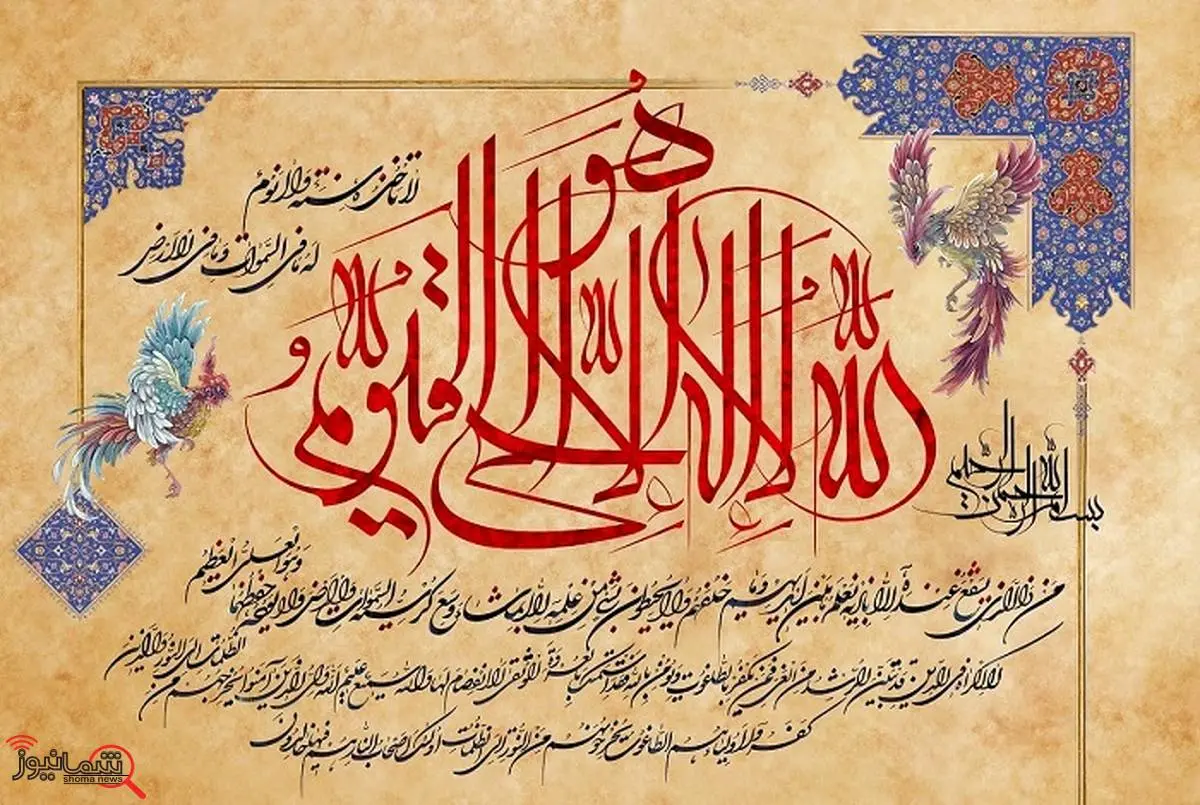 بسم الله الرحمن الرحيم
الله لا إله إلا هو الحي القيوم
لا تأخذه سنة ولا نوم
له ما في السموات وما في الارض
من ذا الذي يشفع عنده الا باذنه يعلم ما بين ايديهم وما خلفهم ولا يحيطون بشئ من علمه الا بما شاء وسع كرسيه السموات والارض ولا يؤده حفظهما
وهو العلي العظيم
لا اكراه في الدين قد تبين الرشد من الغي فمن يكفر بالطاغوت ويؤمن بالله فقد استمسك بالعروة الوثقى لا انفصام لها والله سميع عليم الله ولي الذين آمنوا يخرجهم من
الظلمات الى النور والذين
كفروا اولياؤهم الطاغوت يخرجونهم من النور الى الظلمات اولئك اصحاب النار هم فيها خالدون
شمانیوز
shoma news